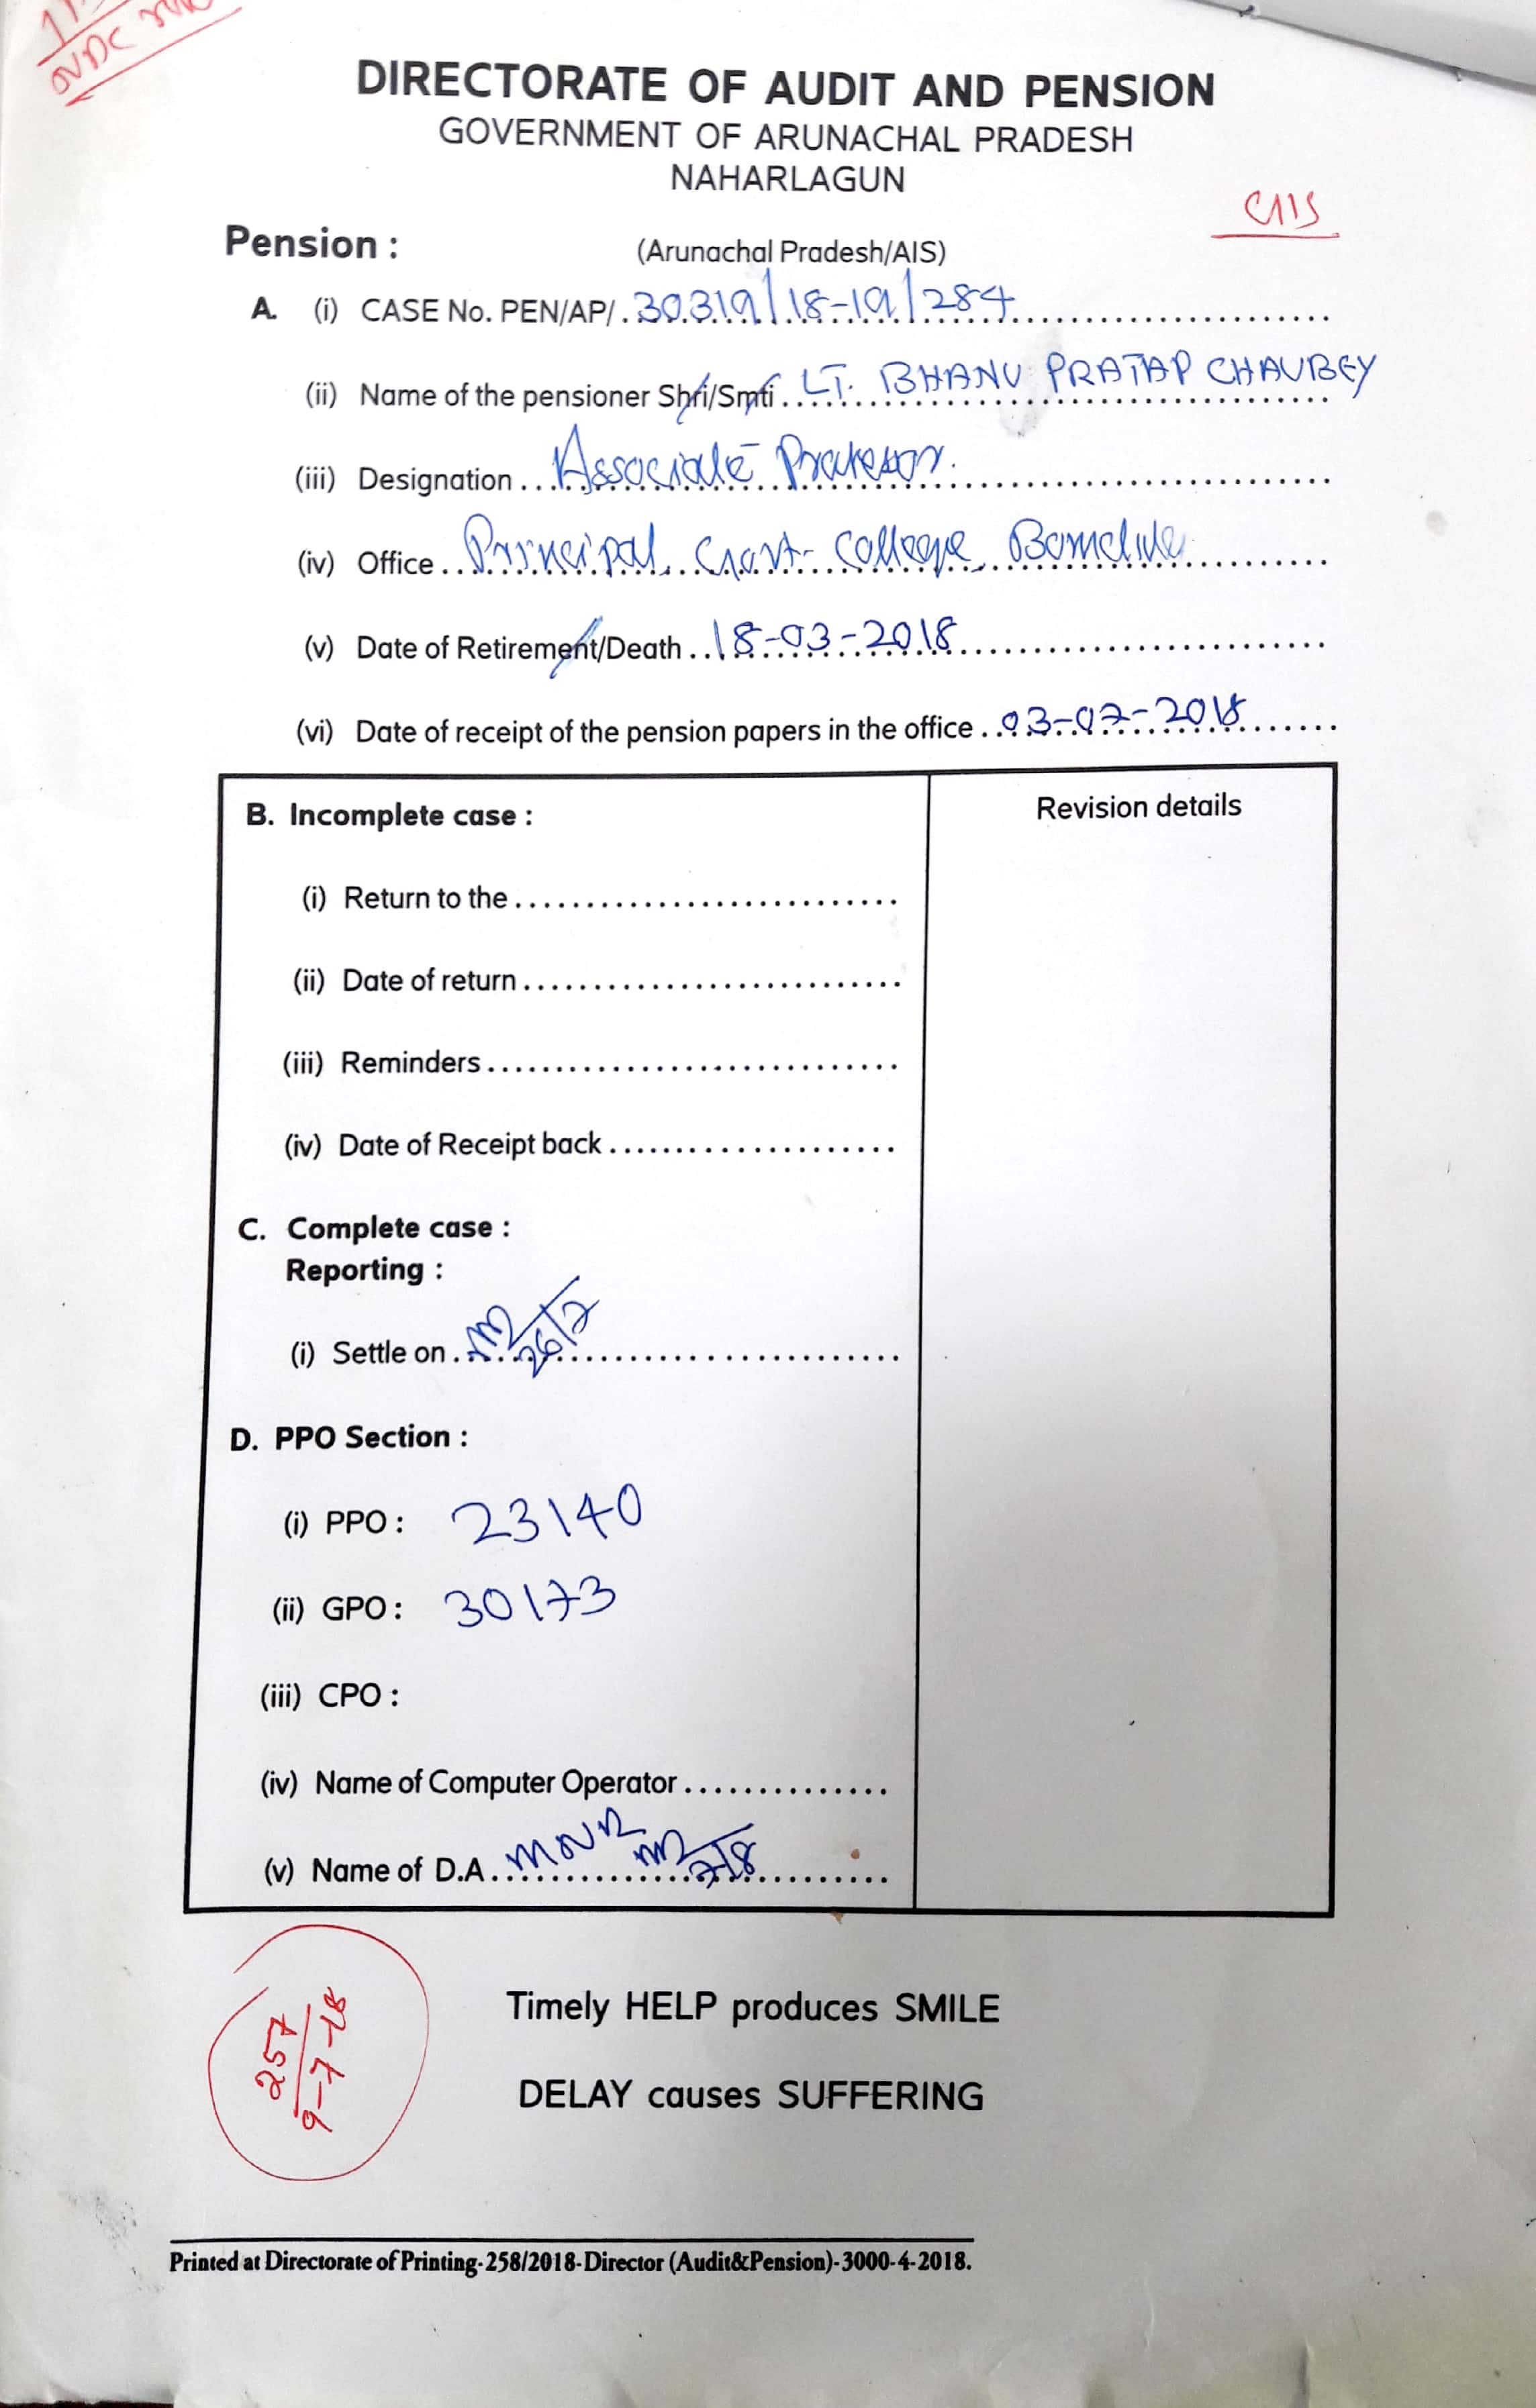 DIRECTORATE OF AUDIT AND PENSION
GOVERNMENT OF ARUNACHAL PRADESH
NAHARLAGUN
Pension :
(Arunachal Pradesh/AIS)
A. (i) CASE No. PEN/AP/. 30319/18-19/284
(ii) Name of the pensioner Shri/Smti LT. BHANU PRATAP CHAUBEY
(iii) Designation Associate Professor.
(iv) Office Principal, Govt- College, Bomdila
(v) Date of Retirement/Death 18-03-2018
(vi) Date of receipt of the pension papers in the office 03-07-2018
B. Incomplete case :
Revision details
(i) Return to the
(ii) Date of return
(iii) Reminders
(iv) Date of Receipt back
C. Complete case :
Reporting :
(i) Settle on 26/7
D. PPO Section :
(i) PPO : 23140
(ii) GPO : 30173
(iii) CPO :
(iv) Name of Computer Operator
(v) Name of D.A. 7/8
257
9-7-18
Timely HELP produces SMILE
DELAY causes SUFFERING
Printed at Directorate of Printing-258/2018-Director (Audit&Pension)-3000-4-2018.